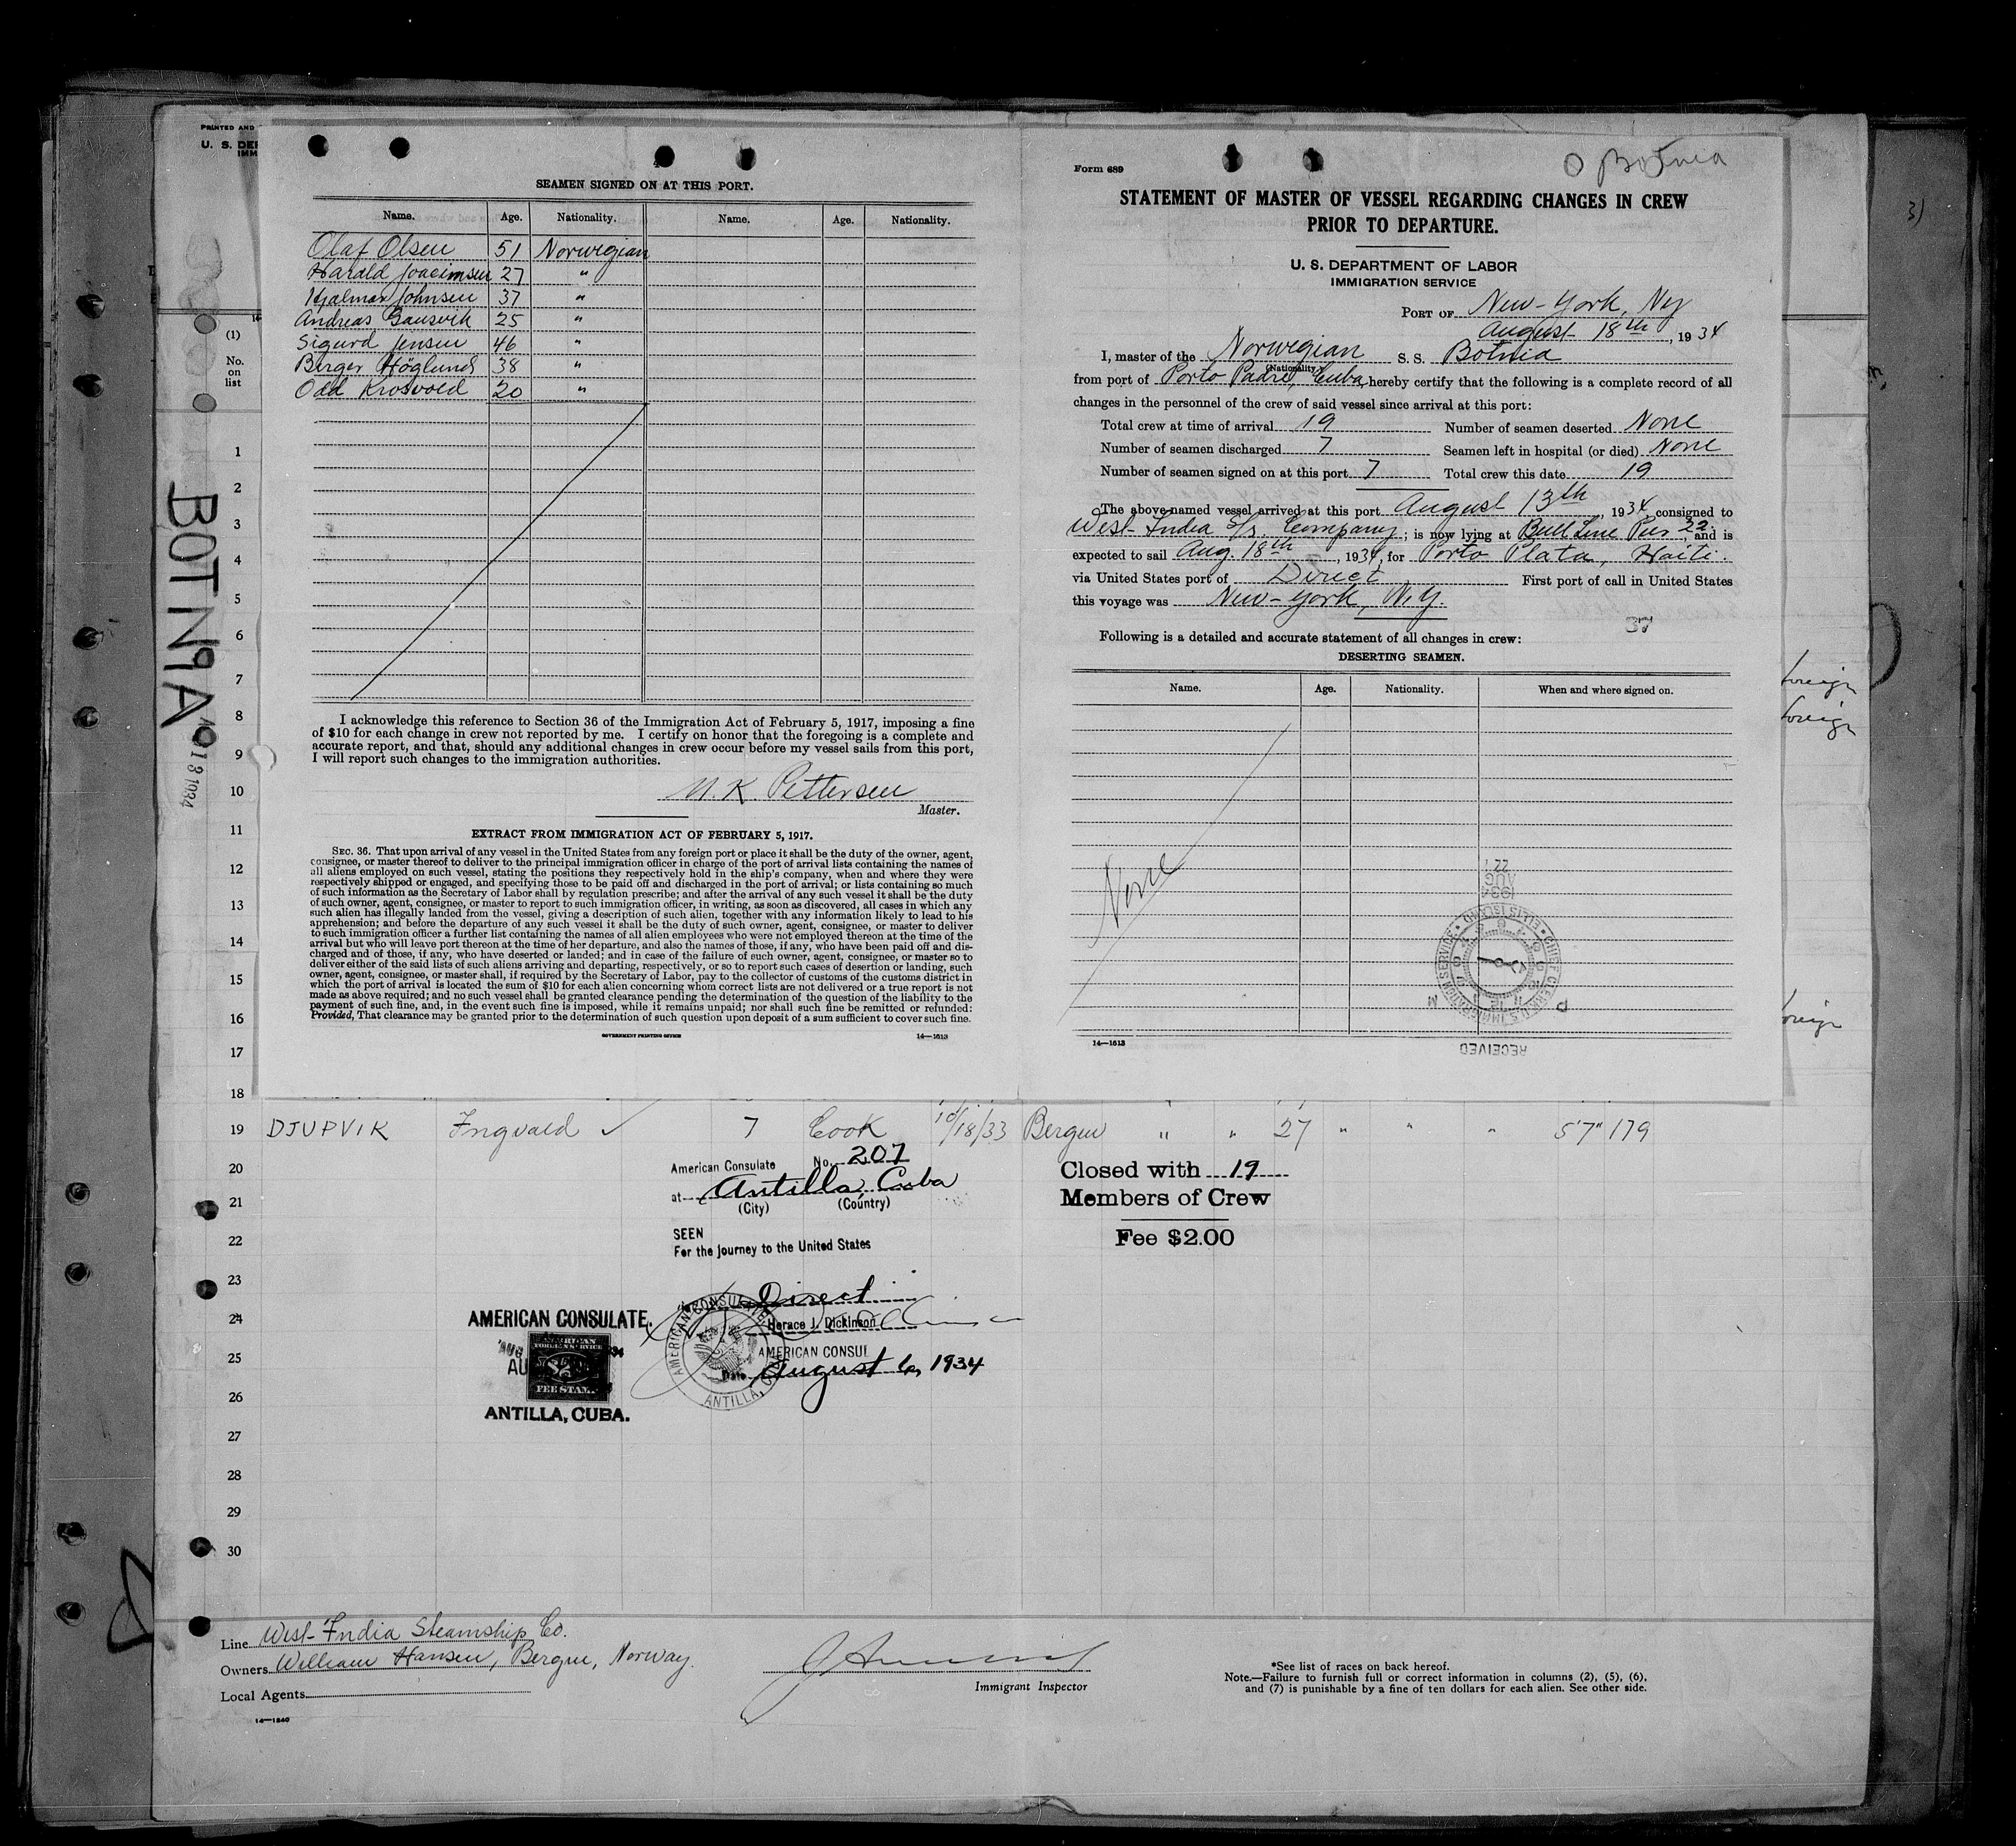 PRINTED AND
U. S. DEP
IMM
SEAMEN SIGNED ON AT THIS PORT.
Name. Age. Nationality. Name. Age. Nationality.
Olaf Olsen 51 Norwegian
Harald Joacimsen 27 "
Hjalmar Johnsen 37 "
Andreas Gausvik 25 "
Sigurd Jensen 46 "
Berger Höglund 38 "
Odd Krosvold 20 "
I acknowledge this reference to Section 36 of the Immigration Act of February 5, 1917, imposing a fine
of $10 for each change in crew not reported by me. I certify on honor that the foregoing is a complete and
accurate report, and that, should any additional changes in crew occur before my vessel sails from this port,
I will report such changes to the immigration authorities.
M. K. Pettersen
Master.
EXTRACT FROM IMMIGRATION ACT OF FEBRUARY 5, 1917.
SEC. 36. That upon arrival of any vessel in the United States from any foreign port or place it shall be the duty of the owner, agent,
consignee, or master thereof to deliver to the principal immigration officer in charge of the port of arrival lists containing the names of
all aliens employed on such vessel, stating the positions they respectively hold in the ship's company, when and where they were
respectively shipped or engaged, and specifying those to be paid off and discharged in the port of arrival; or lists containing so much
of such information as the Secretary of Labor shall by regulation prescribe; and after the arrival of any such vessel it shall be the duty
of such owner, agent, consignee, or master to report to such immigration officer, in writing, as soon as discovered, all cases in which any
such alien has illegally landed from the vessel, giving a description of such alien, together with any information likely to lead to his
apprehension; and before the departure of any such vessel it shall be the duty of such owner, agent, consignee, or master to deliver
to such immigration officer a further list containing the names of all alien employees who were not employed thereon at the time of the
arrival but who will leave port thereon at the time of her departure, and also the names of those, if any, who have been paid off and dis-
charged and of those, if any, who have deserted or landed; and in case of the failure of such owner, agent, consignee, or master so to
deliver either of the said lists of such aliens arriving and departing, respectively, or so to report such cases of desertion or landing, such
owner, agent, consignee, or master shall, if required by the Secretary of Labor, pay to the collector of customs of the customs district in
which the port of arrival is located the sum of $10 for each alien concerning whom correct lists are not delivered or a true report is not
made as above required; and no such vessel shall be granted clearance pending the determination of the question of the liability to the
payment of such fine, and, in the event such fine is imposed, while it remains unpaid; nor shall such fine be remitted or refunded:
Provided, That clearance may be granted prior to the determination of such question upon deposit of a sum sufficient to cover such fine.
GOVERNMENT PRINTING OFFICE 14—1613
Form 689
Botnia
STATEMENT OF MASTER OF VESSEL REGARDING CHANGES IN CREW
PRIOR TO DEPARTURE.
U. S. DEPARTMENT OF LABOR
IMMIGRATION SERVICE
PORT OF New-York, Ny
August 18th, 1934
I, master of the Norwegian S. S. Botnia
(Nationality)
from port of Porto Padre, Cuba, hereby certify that the following is a complete record of all
changes in the personnel of the crew of said vessel since arrival at this port:
Total crew at time of arrival 19 Number of seamen deserted None
Number of seamen discharged 7 Seamen left in hospital (or died) None
Number of seamen signed on at this port 7 Total crew this date 19
The above-named vessel arrived at this port August 13th, 1934, consigned to
West-India S/S. Company; is now lying at Bull Line Pier 22, and is
expected to sail Aug. 18th, 1934, for Porto Plata, Haiti.
via United States port of Direct First port of call in United States
this voyage was New-York, N.Y.
37
Following is a detailed and accurate statement of all changes in crew:
DESERTING SEAMEN.
Name. Age. Nationality. When and where signed on.
None
1934
AUG
22
CHIEF CLERK U.S. IMMIGRATION SERVICE • ELLIS ISLAND •
P M
RECEIVED
14—1613
(1)
No.
on
list
BOTNIA
1
2
3
4
5
6
7
8
9
10
11
12
13
14
15
16
17
18
foreign
foreign
foreign
31
19 DJUPVIK Ingvald ✓ 7 Cook 10/18/33 Bergen " " 27 " " " 5'7" 179
20
21
22
23
24
25
26
27
28
29
30
American Consulate No. 207
at Antilla, Cuba
(City) (Country)
SEEN
For the journey to the United States
Direct
Horace J. Dickinson
AMERICAN CONSUL
Date August 6, 1934
AMERICAN CONSULATE
ANTILLA,
AMERICAN CONSULATE.
AUG
AMERICAN
FOREIGN SERVICE
$2
FEE STAMP
ANTILLA, CUBA.
Closed with 19
Members of Crew
Fee $2.00
Line West-India Steamship Co.
Owners William Hansen, Bergen, Norway.
Local Agents
14—1240
Immigrant Inspector
*See list of races on back hereof.
Note.—Failure to furnish full or correct information in columns (2), (5), (6),
and (7) is punishable by a fine of ten dollars for each alien. See other side.